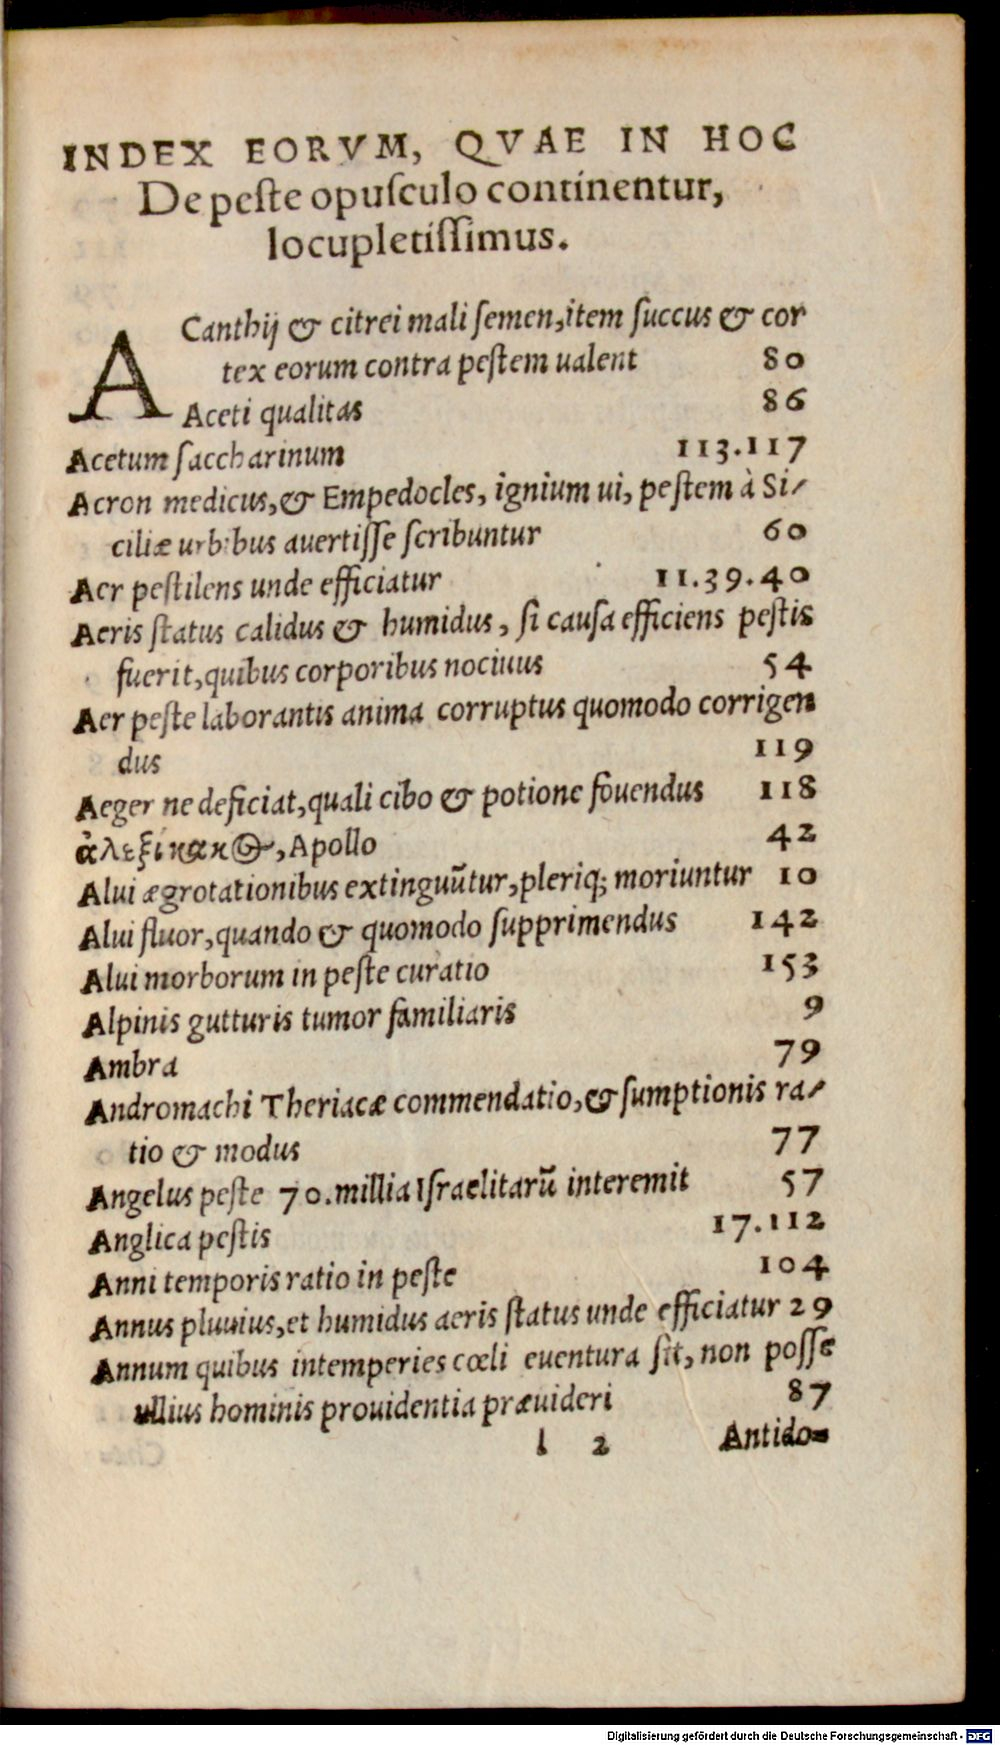 INDEX EORVM, QVAE IN HOC
De peste opusculo continentur,
locupletissimus.
ACanthij & citrei mali semen, item succus & cor
tex eorum contra pestem ualent 80
Aceti qualitas 86
Acetum saccharinum 113.117
Acron medicus, & Empedocles, ignium ui, pestem à Si-
ciliæ urbibus auertisse scribuntur 60
Aer pestilens unde efficiatur 11.39.40
Aeris status calidus & humidus, si causa efficiens pestis
fuerit, quibus corporibus nociuus 54
Aer peste laborantis anima corruptus quomodo corrigen
dus 119
Aeger ne deficiat, quali cibo & potione fouendus 118
ἀλεξίκακος, Apollo 42
Alui ægrotationibus extinguūtur, pleriq; moriuntur 10
Alui fluor, quando & quomodo supprimendus 142
Alui morborum in peste curatio 153
Alpinis gutturis tumor familiaris 9
Ambra 79
Andromachi Theriacæ commendatio, & sumptionis ra-
tio & modus 77
Angelus peste 70. millia Israelitarū interemit 57
Anglica pestis 17.112
Anni temporis ratio in peste 104
Annus pluuius, et humidus aeris status unde efficiatur 29
Annum quibus intemperies cœli euentura sit, non posse
ullius hominis prouidentia præuideri 87
l 2 Antido-
Digitalisierung gefördert durch die Deutsche Forschungsgemeinschaft - DFG